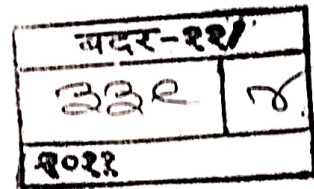 बदर-११/
३३९ ४
२०११